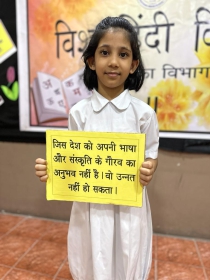 विश्व हिंदी दि
का विभाग
जिस देश को अपनी भाषा
और संस्कृति के गौरव का
अनुभव नहीं है । वो उन्नत
नहीं हो सकता ।